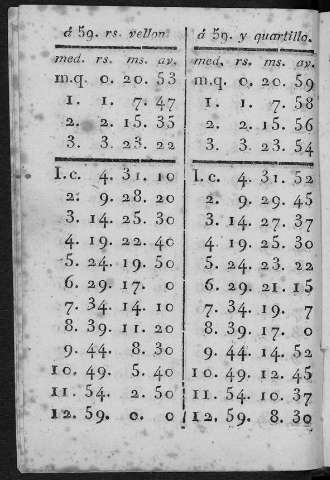 á 59. rs. vellon.
med. rs. ms. av.
m.q. 0. 20. 53
1. 1. 7. 47
2. 2. 15. 35
3. 3. 23. 22
I.c. 4. 31. 10
2. 9. 28. 20
3. 14. 25. 30
4. 19. 22. 40
5. 24. 19. 50
6. 29. 17. 0
7. 34. 14. 10
8. 39. 11. 20
9. 44. 8. 30
10. 49. 5. 40
11. 54. 2. 50
12. 59. 0. 0
á 59. y quartillo.
med. rs. ms. av.
m.q. 0. 20. 59
1. 1. 7. 58
2. 2. 15. 56
3. 3. 23. 54
I.c. 4. 31. 52
2. 9. 29. 45
3. 14. 27. 37
4. 19. 25. 30
5. 24. 23. 22
6. 29. 21. 15
7. 34. 19. 7
8. 39. 17. 0
9. 44. 14. 52
10. 49. 12. 45
11. 54. 10. 37
12. 59. 8. 30